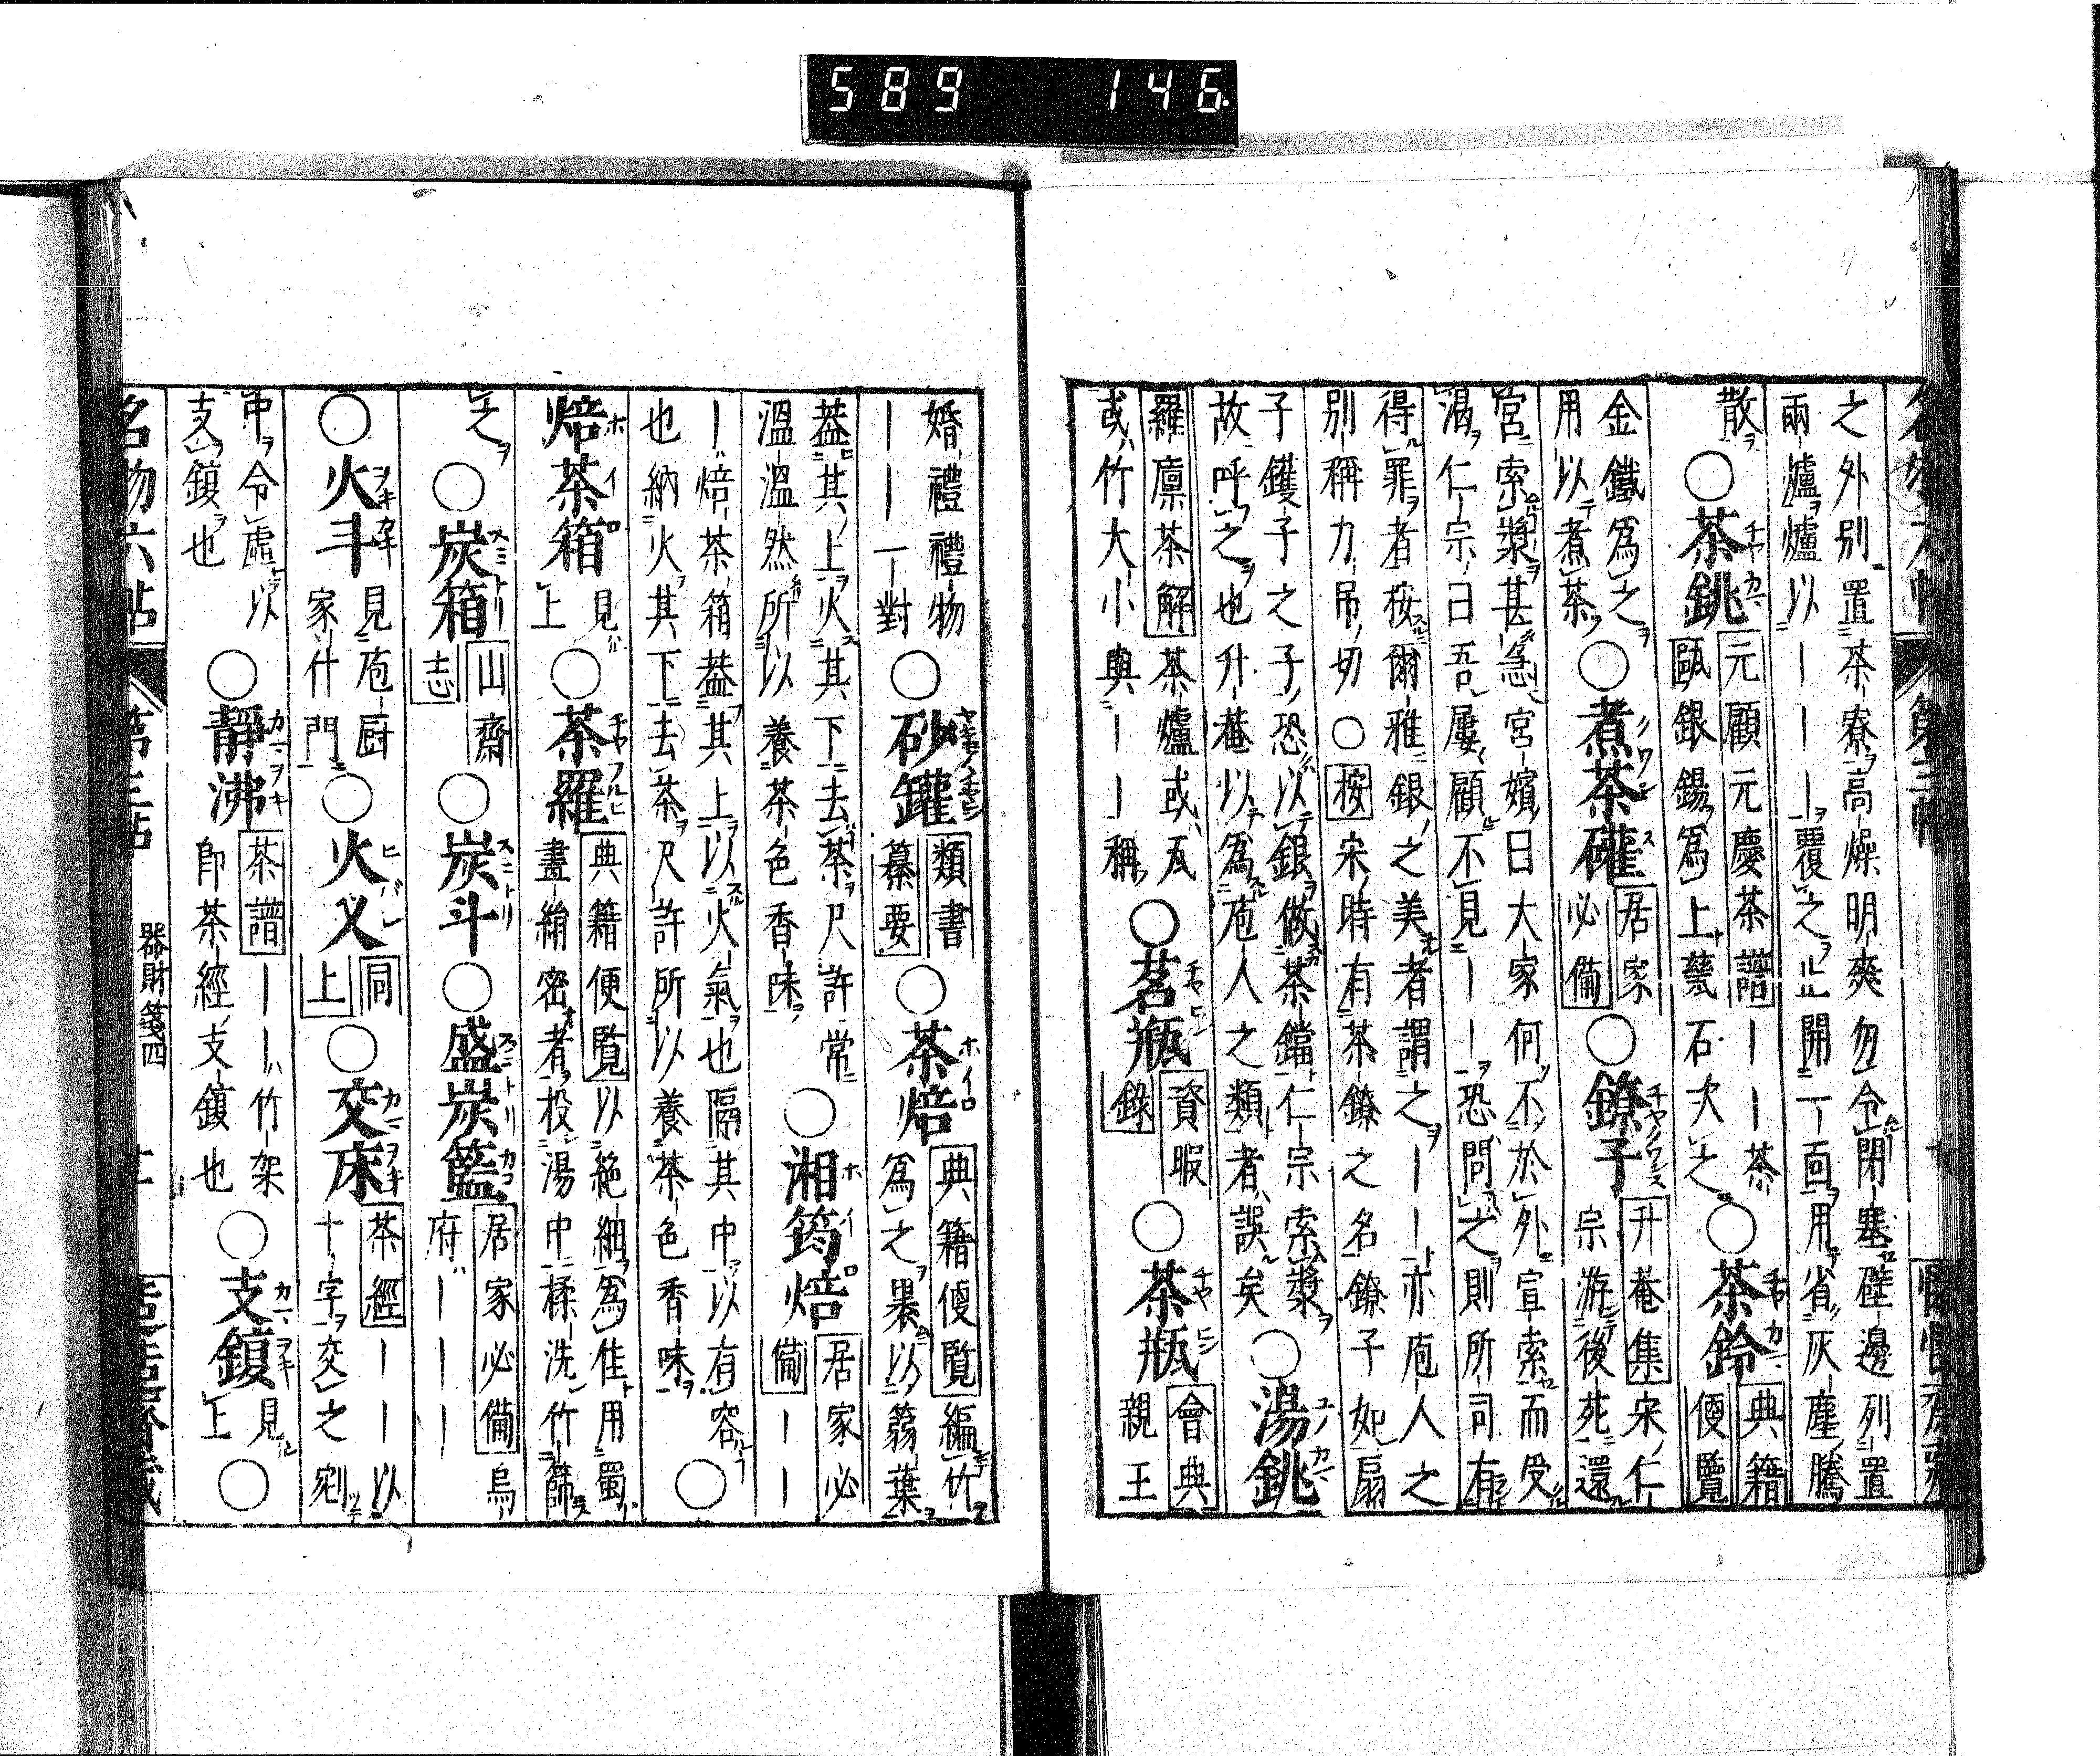 589 146
之外別置茶寮高燥明爽勿令閉塞壁邊列置
兩爐爐以一一一覆之止開一面用省灰塵騰
散〇茶銚 元顧元慶茶譜一一茶
甌銀錫爲上甆石次之〇茶鈴 典籍便覽
金鐵爲之用以煮茶〇煮茶礶 居家必備〇鐐子 升菴集 宋仁
宗游後苑還
宮索漿甚急宮嬪曰大家何不於外宣索而受
渴仁宗曰吾屢顧不見一一恐問之則所司有
得罪者按爾雅銀之美者謂之一一亦庖人之
別稱力吊切〇按宋時有茶鐐之名鐐子如扇
子鑊子之子恐以銀做茶鐺仁宗索漿
故呼之也升菴以爲庖人之類者誤矣〇湯銚
羅廩茶解 茶爐或瓦
或竹大小與一一稱〇茗瓶 資暇錄〇茶瓶 會典 親王
婚禮禮物
一一一對〇砂罐 類書纂要〇茶焙 典籍便覧 編竹
爲之裹以蒻葉
葢其上火其下去茶尺許常
溫溫然所以養茶色香味〇湘筠焙 居家必備 一一
一焙茶箱葢其上以火氣也隔其中以有容
也納火其下去茶尺許所以養茶色香味〇
焙茶箱 見上〇茶羅 典籍便覧 以絕細爲佳用蜀
畫絹密者投湯中揉洗竹篩
之〇炭箱 山齋志〇炭斗〇盛炭籃 居家必備 烏
府一一一
〇火斗 見庖厨
家什門〇火乂 同上〇交床 茶經 一一以
十字交之剜
中令虛以
支鍑也〇靜沸 茶譜 一一竹架
卽茶經支鍑也〇支鍑 見上〇
名物六帖 第三帖 器財箋四